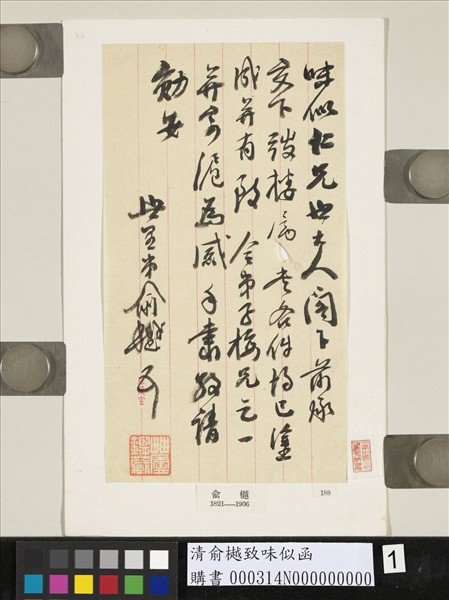 味似仁兄世大人閣下前承
交下 屬書各件均已塗
成并有致令弟子梅兄之一
并寄滬為感手肅敬請
勛安
世愚弟俞樾
俞樾
1821—1906
188
清俞樾致味似函
購書 000314N000000000
1